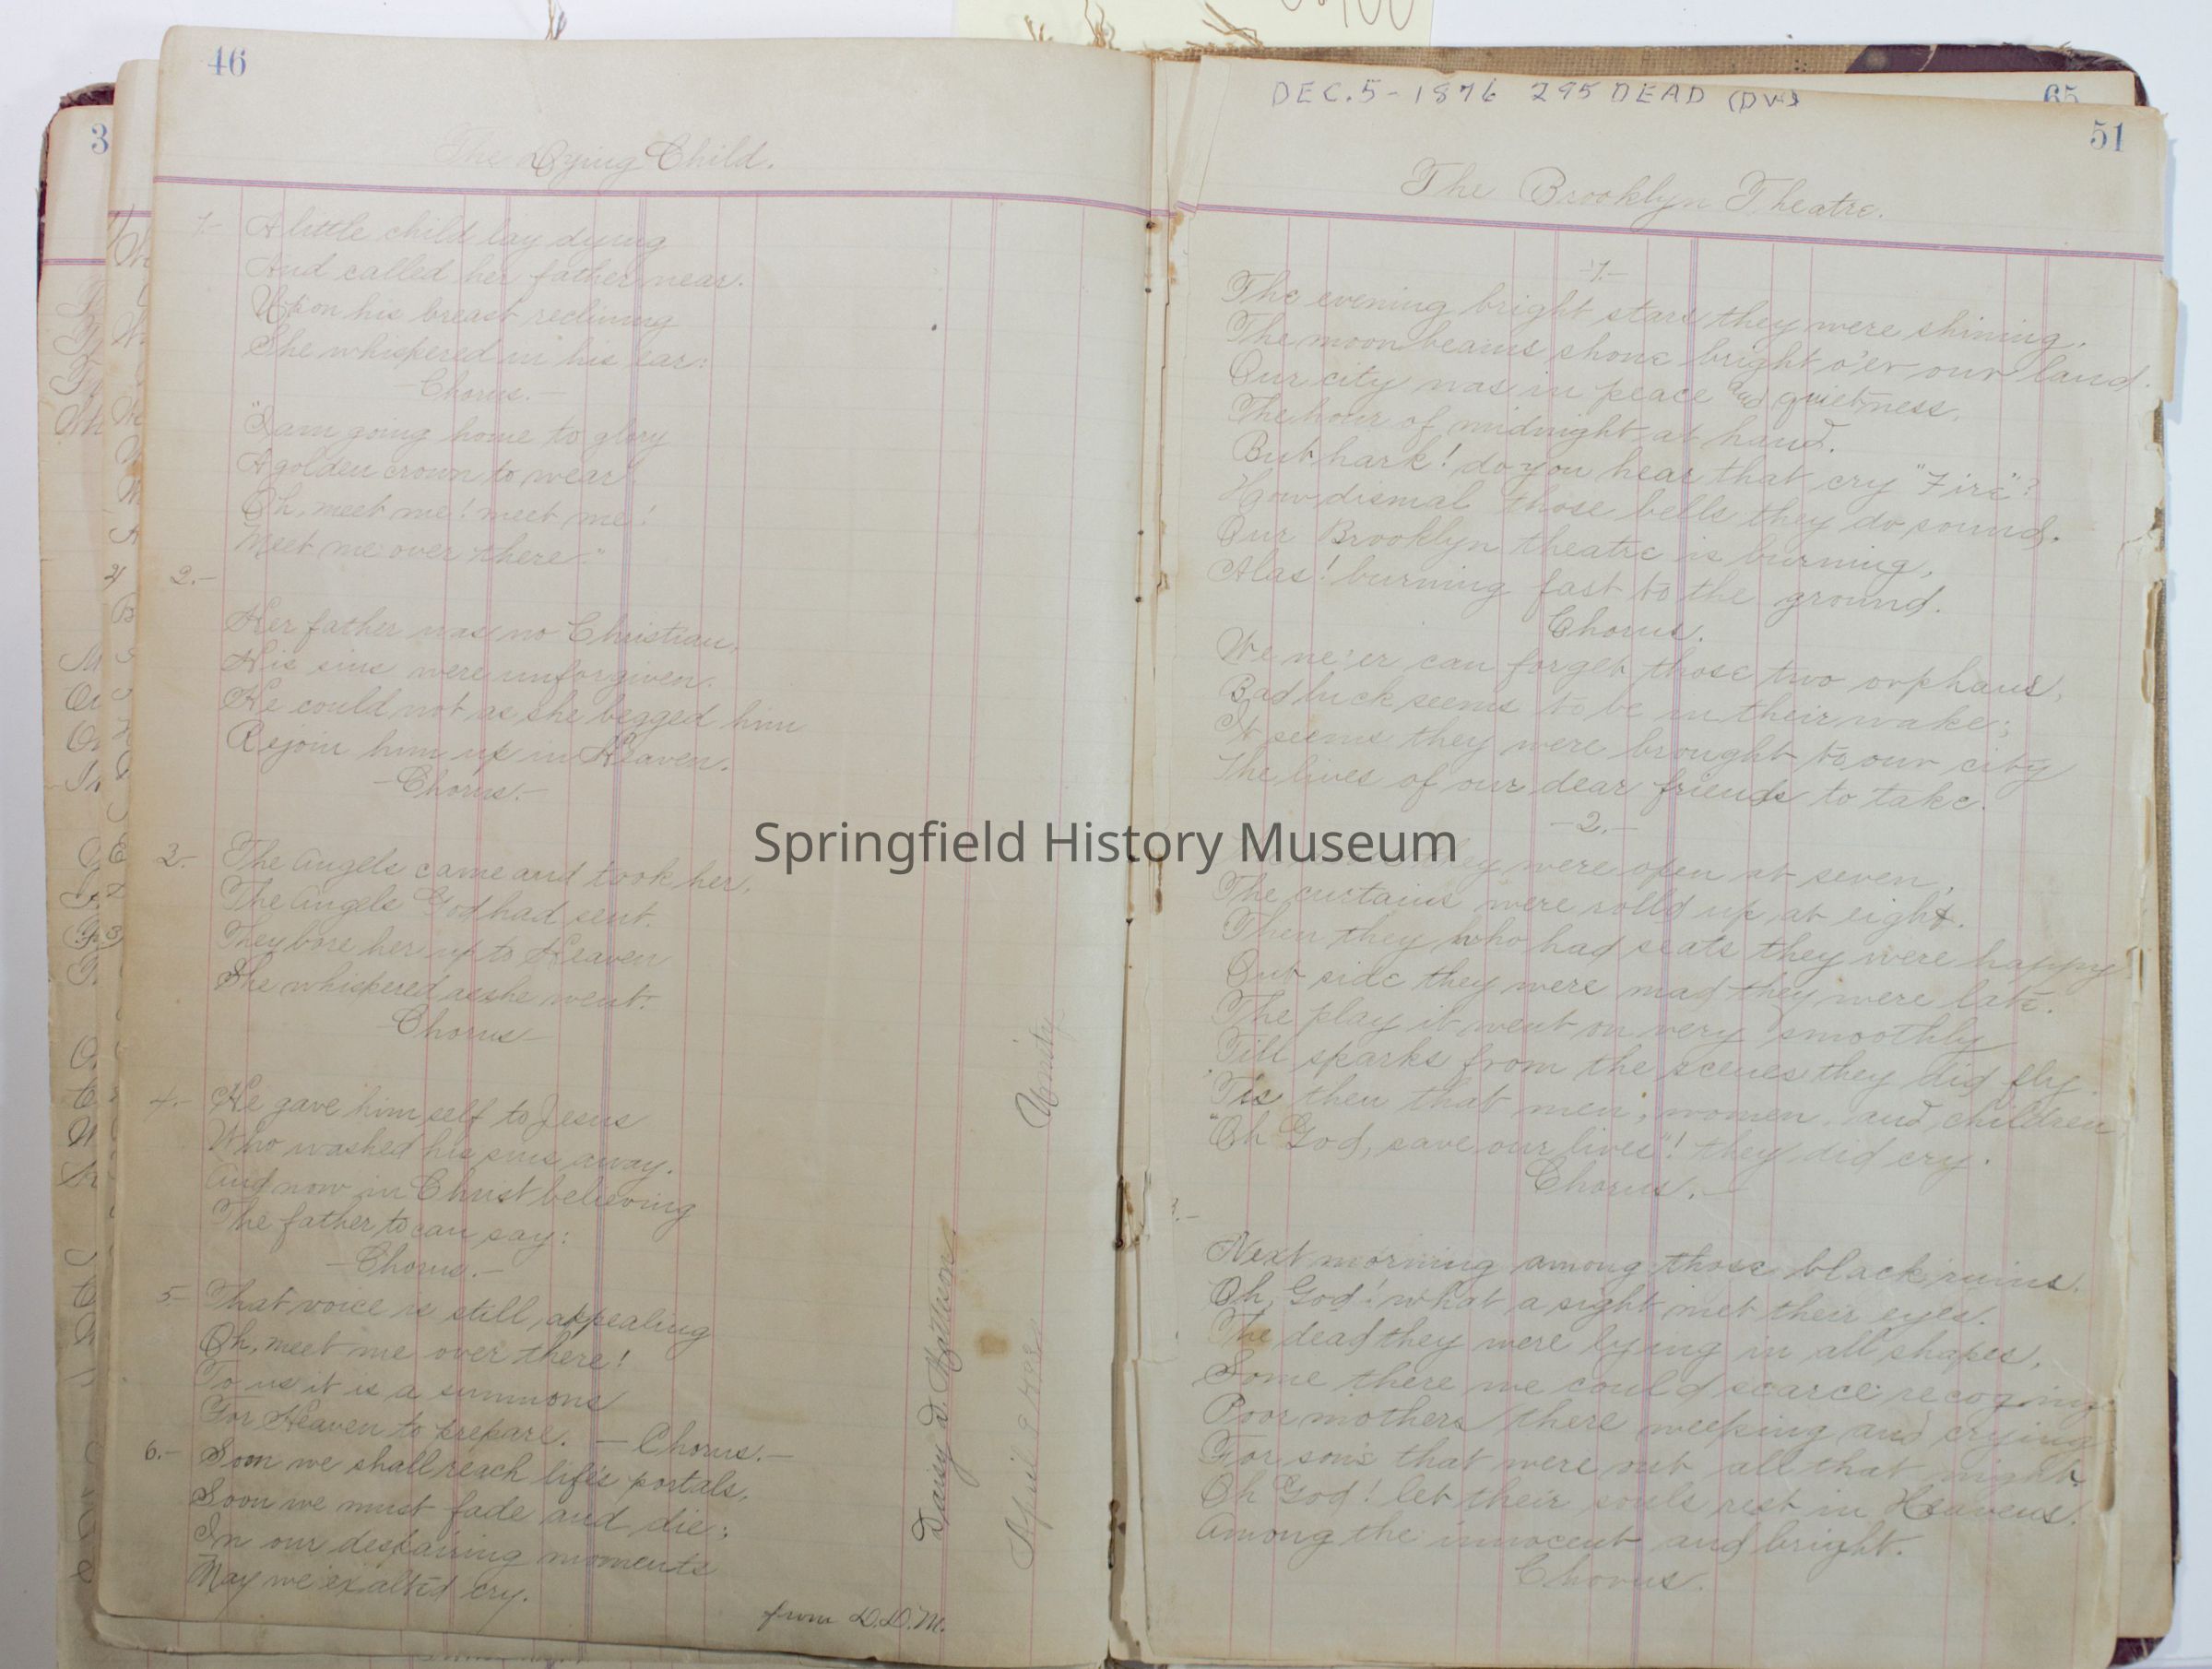 46
The Dying Child.
1- A little child lay dying
And called her father near.
Upon his breast reclining
She whispered in his ear:
-Chorus.-
"I am going home to glory
A golden crown to wear.
Oh, meet me! meet me!
Meet me over there."
2.-
Her father was no Christian,
His sins were unforgiven.
He could not as she begged him
Rejoin him up in Heaven.
-Chorus.-
3- The Angels came and took her,
The Angels God had sent.
They bore her up to Heaven
She whispered as she went:
-Chorus-
4.- He gave himself to Jesus
Who washed his sins away.
And now in Christ believing
The father to can say:
-Chorus.-
5- That voice is still appealing
Oh, meet me over there!
To us it is a summons
For Heaven to prepare. - Chorus.-
6.- Soon we shall reach life's portals,
Soon we must fade and die:
In our despairing moments
May we exalted cry.
from D.D.M.
Daisy D. Mattison
April 9
Amity
DEC. 5 - 1876 295 DEAD (DW)
65
51
The Brooklyn Theatre.
-1.-
The evening bright stars they were shining.
The moon beams shone bright o'er our land.
Our city was in peace and quietness.
The hour of midnight at hand.
But hark! do you hear that cry "Fire"?
How dismal those bells they do sound.
Our Brooklyn theatre is burning,
Alas! burning fast to the ground.
Chorus.
We ne'er can forget those two orphans,
Bad luck seems to be in their wake;
It seems they were brought to our city
The lives of our dear friends to take.
-2.-
they were open at seven,
The curtains were rolld up at eight.
Then they who had seats they were happy
Out side they were mad they were late.
The play it went on very smoothly
Till sparks from the scenes they did fly
'Tis then that men, women, and children,
"Oh God, save our lives"! they did cry.
Chorus.-
3.-
Next morning among those black ruins.
Oh, God! what a sight met their eyes.
The dead they were lying in all shapes,
Some there we could scarce recogning
Poor mothers there weeping and crying
For sons that were out all that night.
Oh God! let their souls rest in Heavens.
Among the innocent and bright.
Chorus.
Springfield History Museum